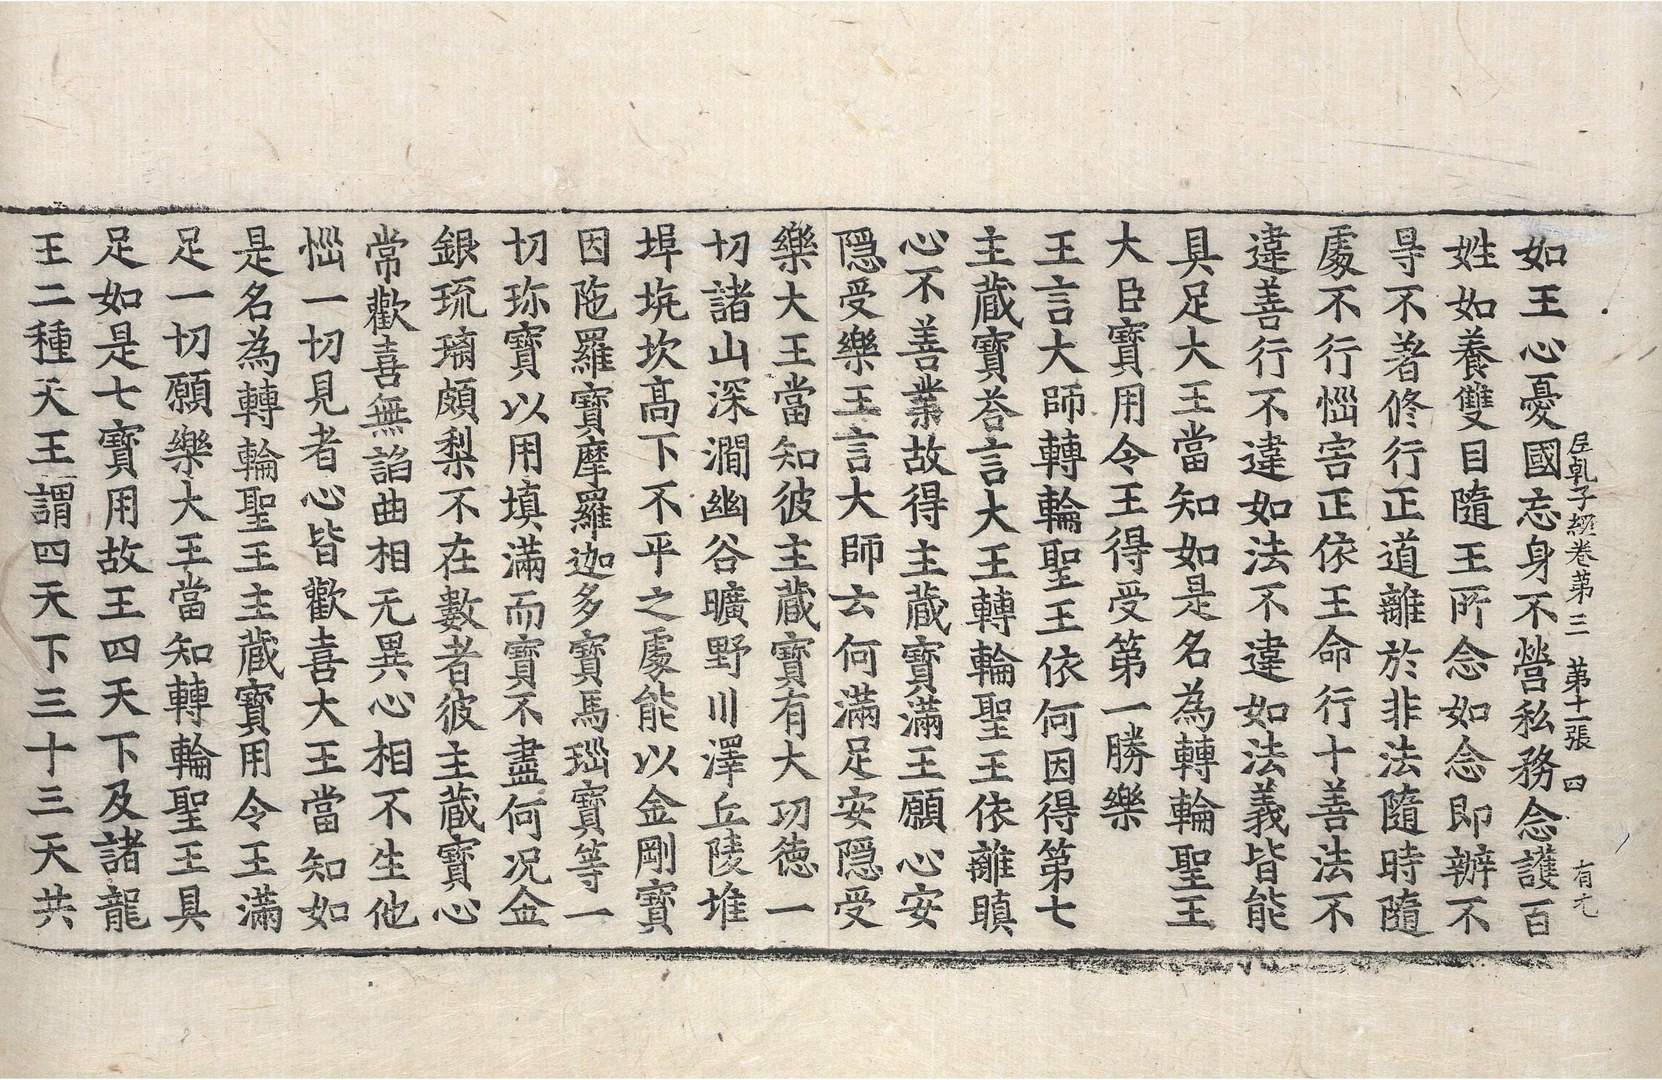 尼乹子經卷第三　第十一張　四　有元
如王心憂國忘身不營私務念護百
姓如養雙目隨王所念如念即辦不
㝵不著修行正道離於非法隨時隨
處不行惱害正依王命行十善法不
違善行不違如法不違如法義皆能
具足大王當知如是名為轉輪聖王
大臣寶用令王得受第一勝樂
王言大師轉輪聖王依何因得第七
主藏寶荅言大王轉輪聖王依離瞋
心不善業故得主藏寶滿王願心安
隱受樂王言大師云何滿足安隱受
樂大王當知彼主藏寶有大功德一
切諸山深澗幽谷曠野川澤丘陵堆
埠坑坎高下不平之處能以金剛寶
因陁羅寶摩羅迦多寶馬瑙寶等一
切珎寶以用填滿而寶不盡何况金
銀琉璃頗梨不在數者彼主藏寶心
常歡喜無諂曲相无異心相不生他
惱一切見者心皆歡喜大王當知如
是名為轉輪聖王主藏寶用令王滿
足一切願樂大王當知轉輪聖王具
足如是七寶用故王四天下及諸龍
王二種天王謂四天下三十三天共